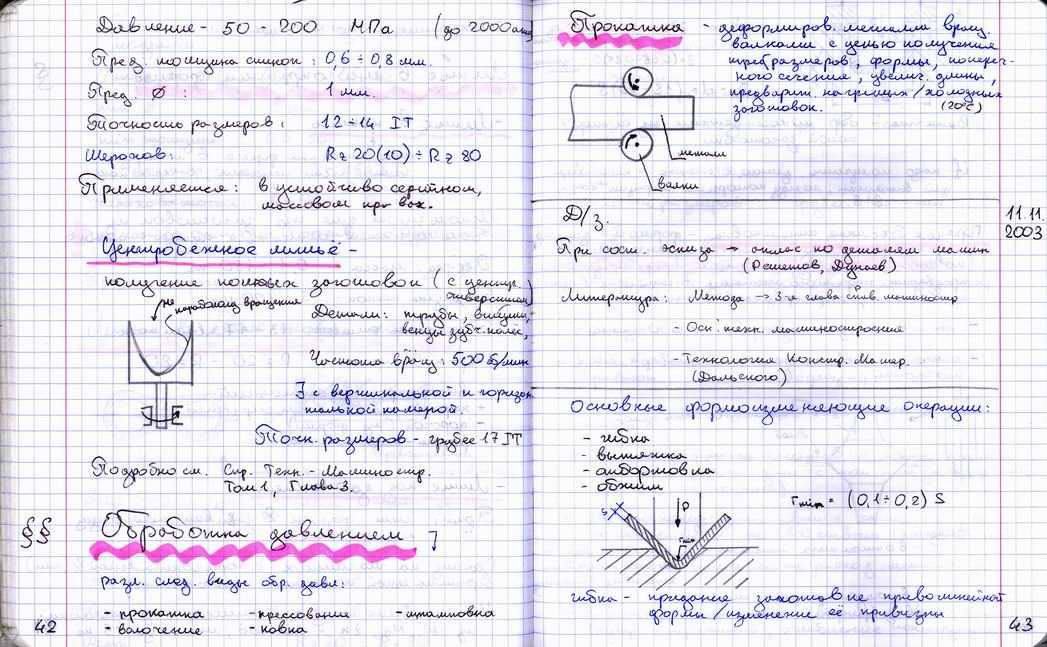 Давление - 50 - 200 МПа (до 2000 атм)
Пред. толщина стенок: 0,6 ÷ 0,8 мм.
Пред. ∅ : 1 мм.
Точность размеров: 12 ÷ 14 IT
Шерохов: Rz 20(10) ÷ Rz 80
Применяется: в устойчиво серийном,
массовом пр-вах.
Центробежное литьё -
получение полых заготовок (с центр.
отверстием)
по параболоиду вращения
Детали: трубы, втулки,
венцы зуб. колёс,
Частота вращ: 500 об/мин
∃ с вертикальной и горизон
тальной камерой.
Точн. размеров - грубее 17 IT
Подробно см. Спр. Техн. - Машиностр.
Том 1, Глава 3.
§§ Обработка давлением
разл. след. виды обр. давл:
- прокатка - прессование - штамповка
- волочение - ковка
42
Прокатка - деформиров. металла вращ.
валками с целью получения
треб размеров, формы, попереч-
ного сечения, увелич. длины,
предварит. нагретых/холодных
заготовок. (20°C)
металл
валки
Д/з.
11.11.
2003
При сост. эскиза → атлас по деталям машин
(Решетов, Дунаев)
Литература: Метода → 3-я глава спр. машиностр
- Осн. техн. машиностроения
- Технология Констр. Матер.
(Дальского)
Основные формоизменяющие операции:
- гибка
- вытяжка
- отбортовка
- обжим
rmin = (0,1 ÷ 0,2) S
S
P
rmin
гибка - придание заготовке криволинейной
формы/изменение её кривизны
43